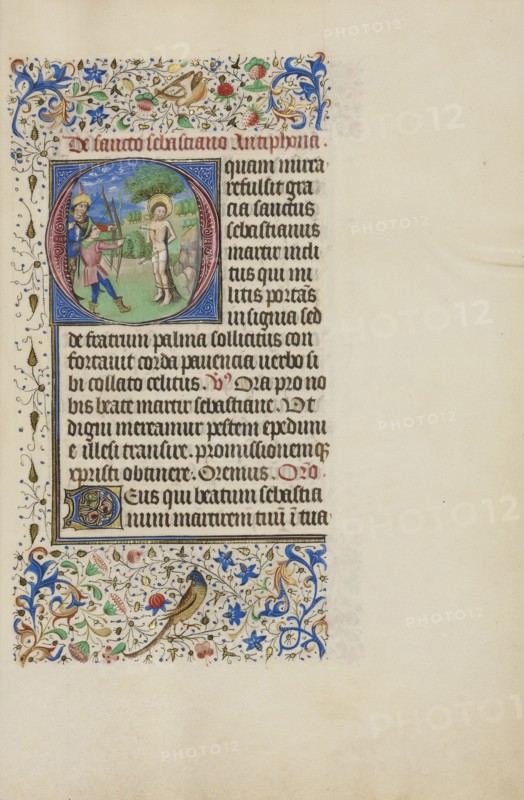 De sancto sebastiano Antiphona.
O quam mira
refulsit gra
cia sanctus
sebastianus
martir incli
tus qui mi
litis portās
insignia sed
de fratrum palma sollicitus con
fortauit corda pauencia uerbo si
bi collato celitus. V⁹ Ora pro no
bis beate martir sebastiane. Vt
digni mereamur pestem epedimi
e illesi transire. promissionem qꝫ
xpristi obtinere. Oremus. Oro.
Deus qui beatum sebastia
num martirem tuū ī tua
PHOTO12
PHOTO12
PHOTO12
PHOTO12
PHOTO12
PHOTO12
PHOTO12
PHOTO12
PHOTO12
PHOTO12